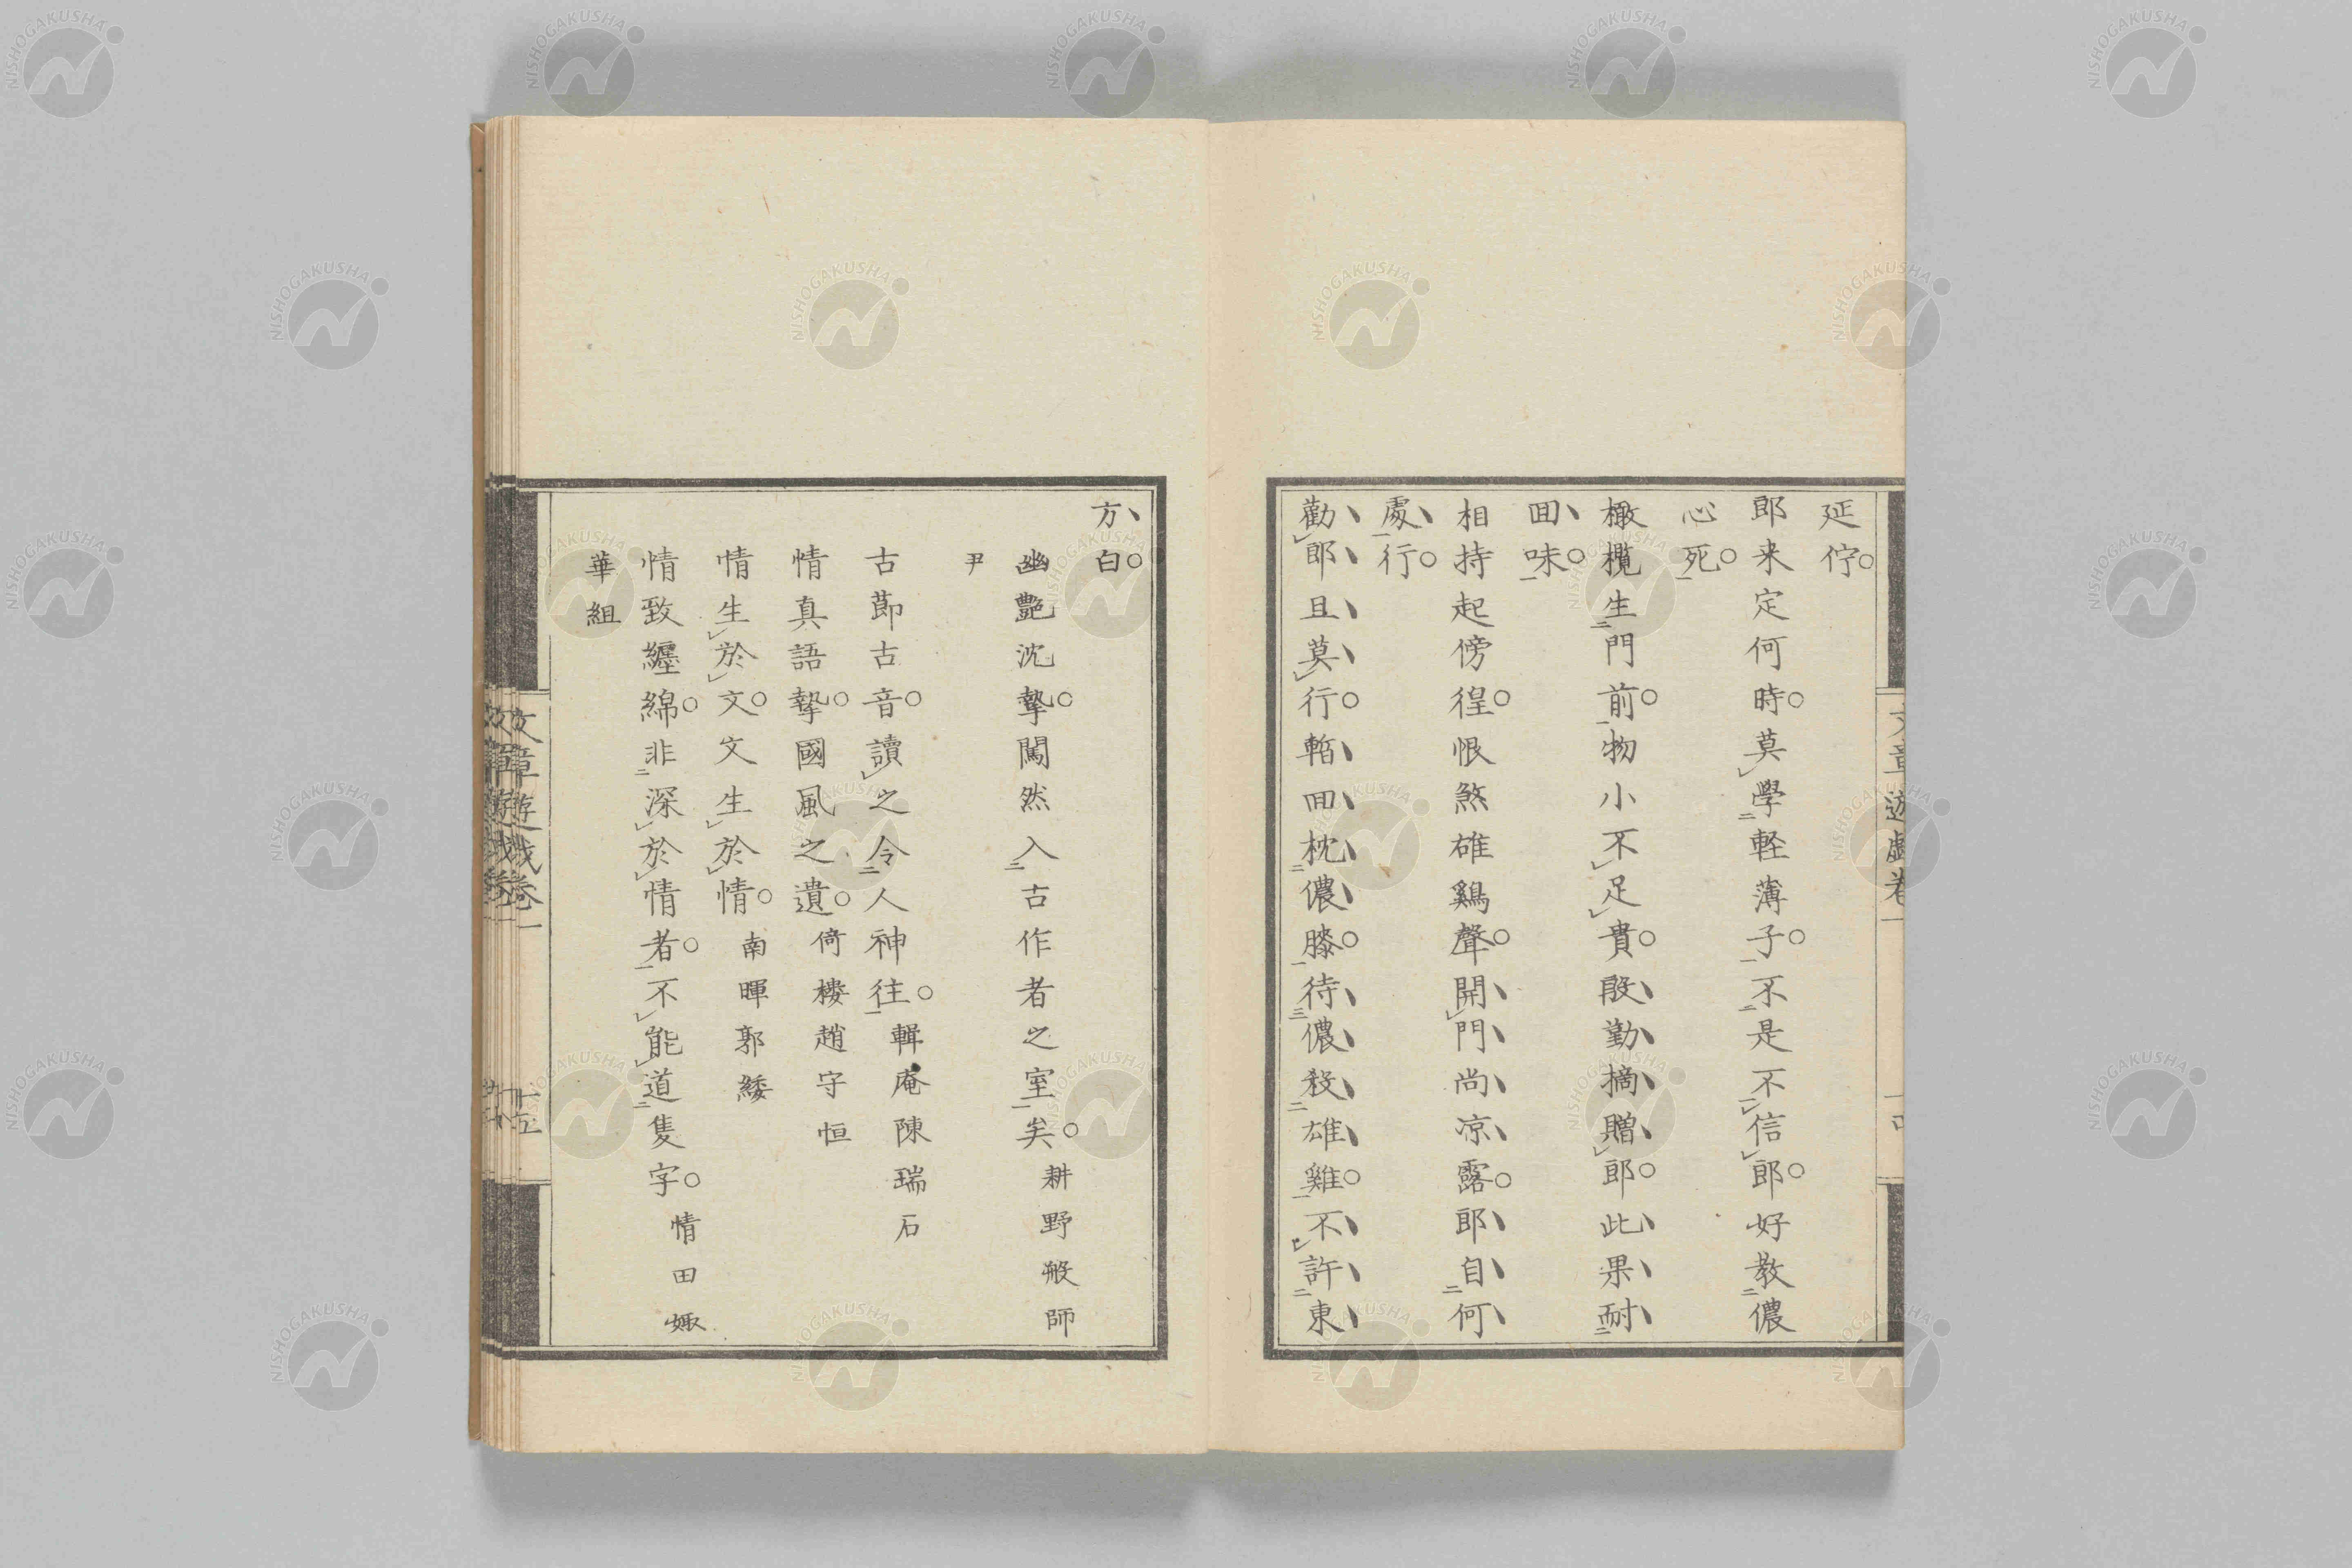 延佇。
郎来定何時。莫學軽薄子。不是不信郎。好教儂
心死。
橄欖生門前。物小不足貴。殷勤摘贈郎。此果耐
回味。
相持起傍徨。恨煞碓鷄聲。開門尚凉露。郎自何
處行。
勸郎且莫行。暫回枕儂膝。待儂殺雄雞。不許東
方白。
幽艷沈摯。闖然入古作者之室矣。耕野般師
尹
古節古音。讀之令人神往。輯庵陳瑞石
情真語摯。國風之遺。倚樓趙守恒
情生於文。文生於情。南暉郭緌
情致纒綿。非深於情者。不能道隻字。情田娵
華組
文章遊戯卷一
NISHOGAKUSHA